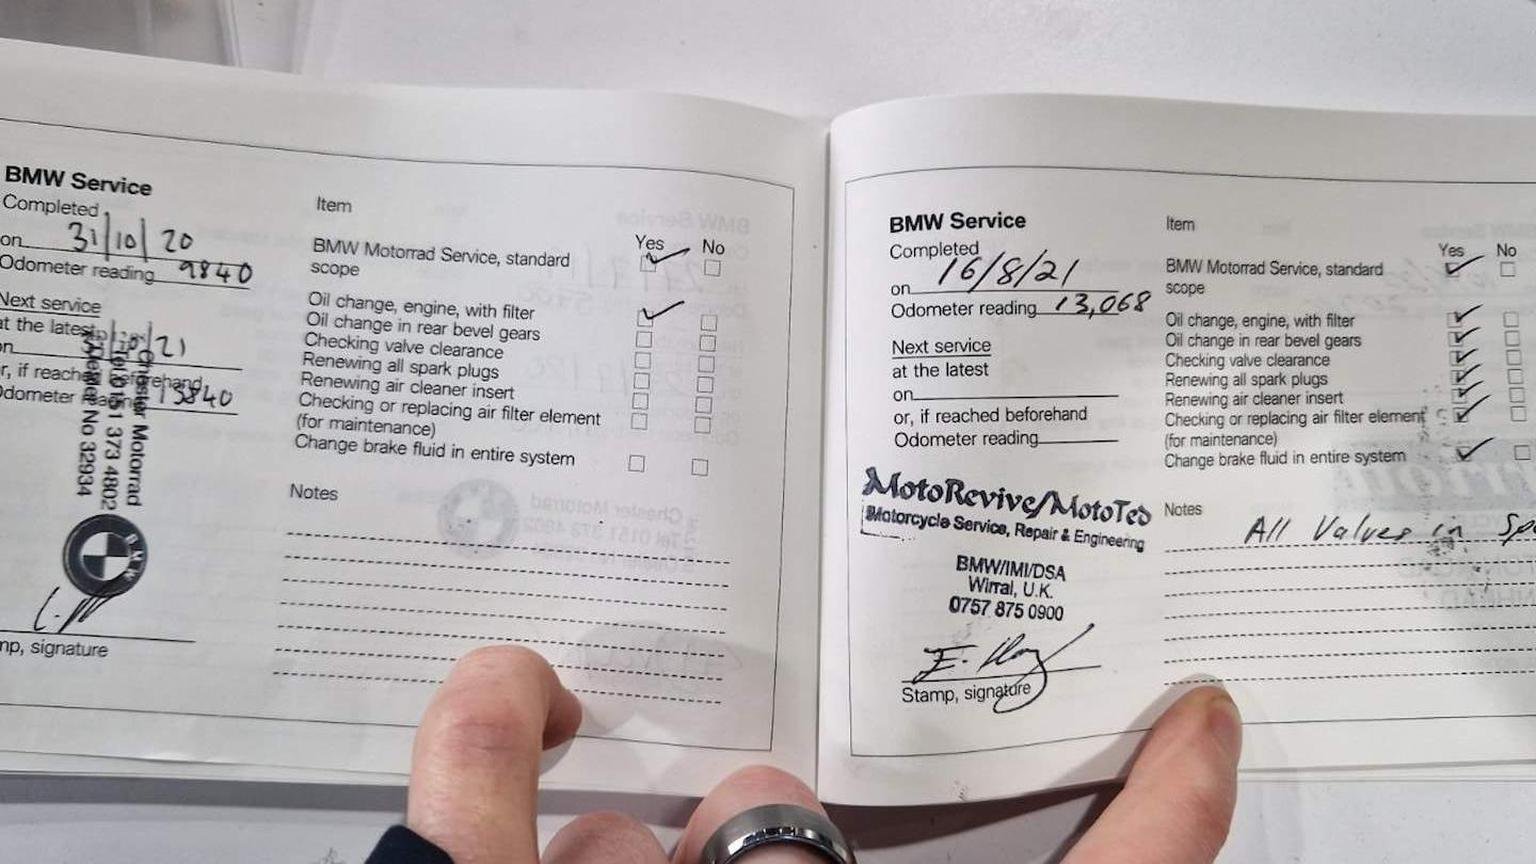 BMW Service
Completed
on 31/10/20
Odometer reading 9840
Next service
at the latest
/21
r, if reached beforehand
Odometer reading 13840
Chester Motorrad
Tel 0151 373 4802
Dealer No 32934
BMW
mp, signature
Item
Yes No
BMW Motorrad Service, standard
scope
Oil change, engine, with filter
Oil change in rear bevel gears
Checking valve clearance
Renewing all spark plugs
Renewing air cleaner insert
Checking or replacing air filter element
(for maintenance)
Change brake fluid in entire system
Notes
BMW Service
Completed
on 16/8/21
Odometer reading 13,068
Next service
at the latest
on
or, if reached beforehand
Odometer reading
MotoRevive/MotoTed
Motorcycle Service, Repair & Engineering
BMW/IMI/DSA
Wirral, U.K.
0757 875 0900
Stamp, signature
Item
Yes No
BMW Motorrad Service, standard
scope
Oil change, engine, with filter
Oil change in rear bevel gears
Checking valve clearance
Renewing all spark plugs
Renewing air cleaner insert
Checking or replacing air filter element
(for maintenance)
Change brake fluid in entire system
Notes
All Valves in Sp